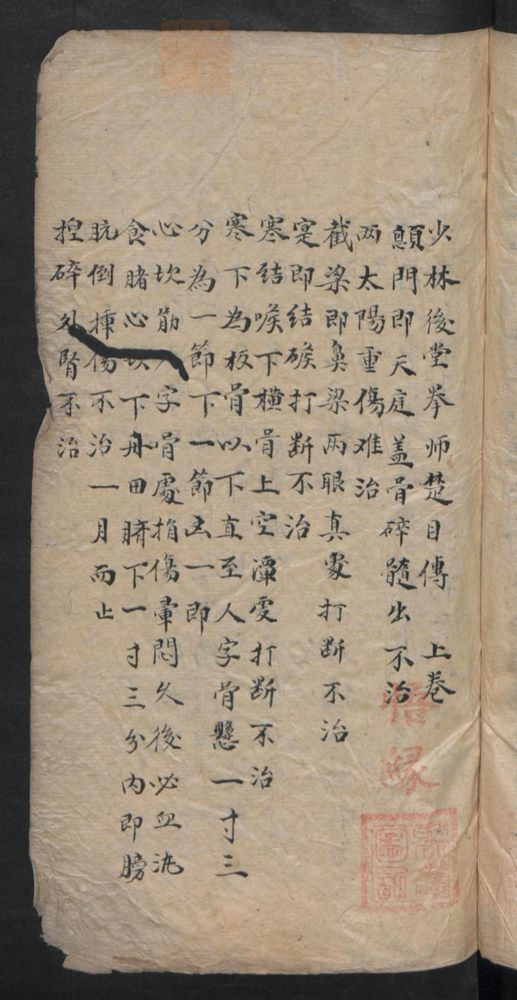 少林後堂拳師楚目傳　上卷
顖門即天庭盖骨碎髓出不治
两太陽重傷难治
截梁即鼻梁两眼真䖏打断不治
寔即结䂳打断不治
寒结喉下横骨上空潭䖏打断不治
寒下为板骨以下直至人字骨懸一寸三
分為一節下一節去一即
心坎筋人字骨處指傷暈悶久後必血沈
食賭心坎下丹田臍下一寸三分内即膀
胱倒揷傷不治一月而止
揑碎外腎不治
悟缘